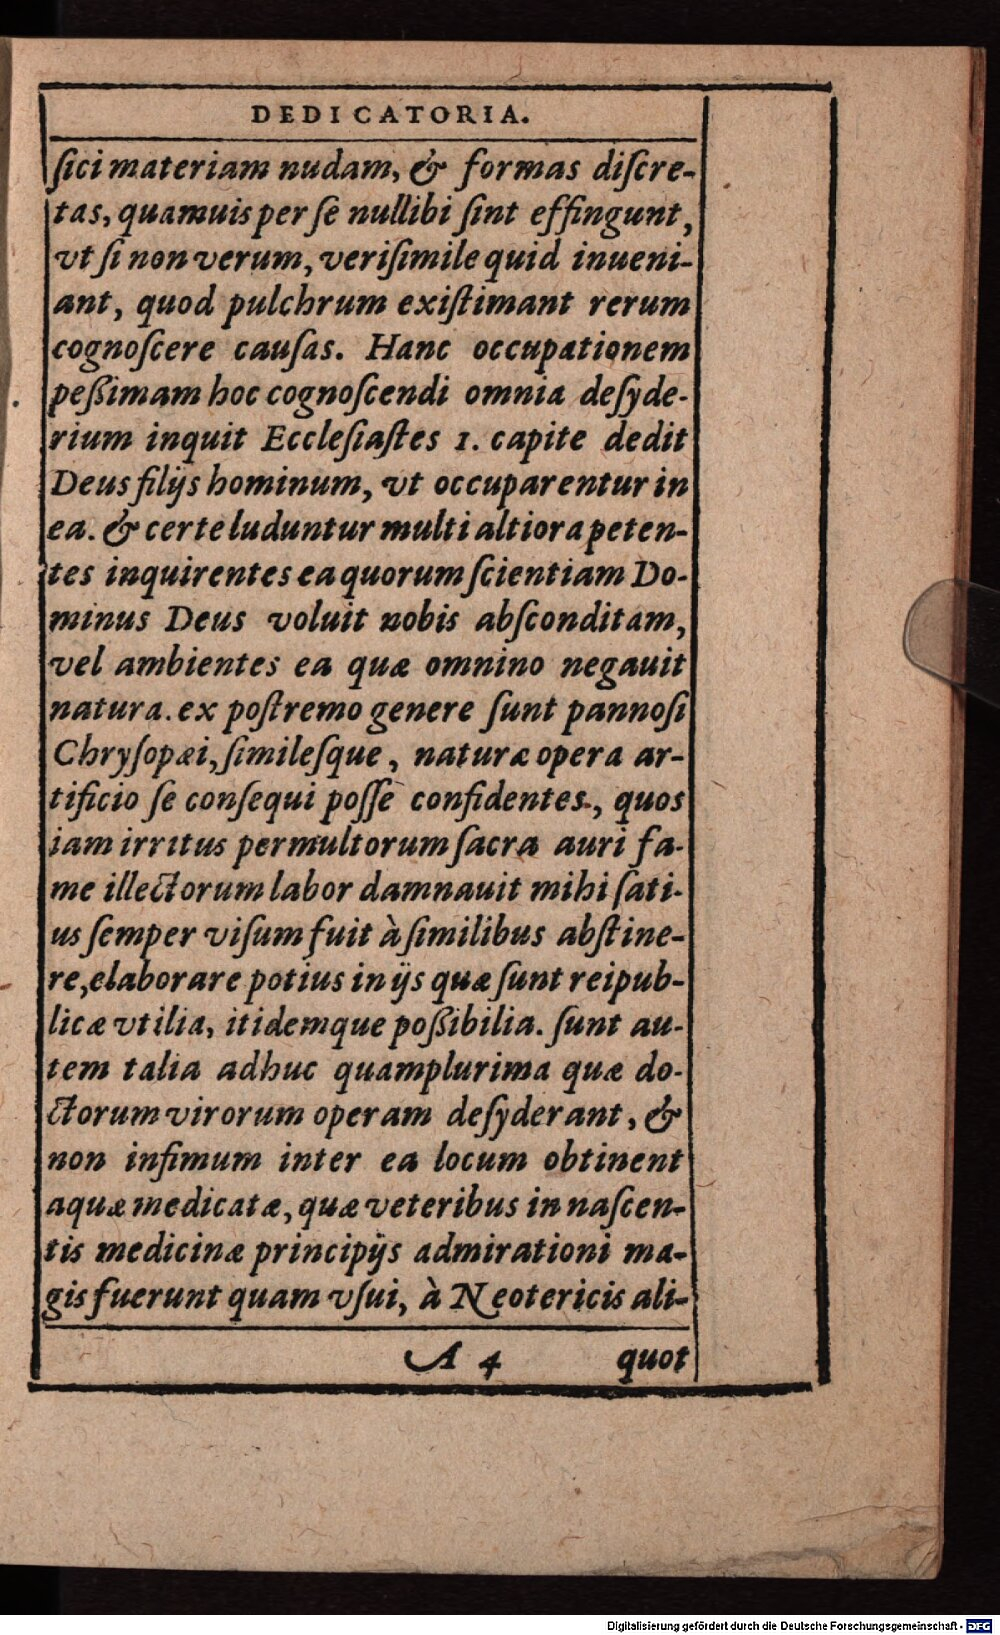 DEDICATORIA.
ſici materiam nudam, & formas diſcre-
tas, quamuis per ſe nullibi ſint effingunt,
vt ſi non verum, veriſimile quid inueni-
ant, quod pulchrum exiſtimant rerum
cognoſcere cauſas. Hanc occupationem
peßimam hoc cognoſcendi omnia deſyde-
rium inquit Eccleſiaſtes 1. capite dedit
Deus filijs hominum, vt occuparentur in
ea. & certe luduntur multi altiora peten-
tes inquirentes ea quorum ſcientiam Do-
minus Deus voluit nobis abſconditam,
vel ambientes ea quæ omnino negauit
natura. ex poſtremo genere ſunt pannoſi
Chryſopæi, ſimilesque, naturæ opera ar-
tificio ſe conſequi poſſe confidentes, quos
iam irritus permultorum ſacra auri fa-
me illectorum labor damnauit mihi ſati-
us ſemper viſum fuit à ſimilibus abſtine-
re, elaborare potius in ijs quæ ſunt reipub-
licæ vtilia, itidemque poßibilia. ſunt au-
tem talia adhuc quamplurima quæ do-
ctorum virorum operam deſyderant, &
non infimum inter ea locum obtinent
aquæ medicatæ, quæ veteribus in naſcen-
tis medicinæ principijs admirationi ma-
gis fuerunt quam vſui, à Neotericis ali-
A 4 quot
Digitalisierung gefördert durch die Deutsche Forschungsgemeinschaft - DFG